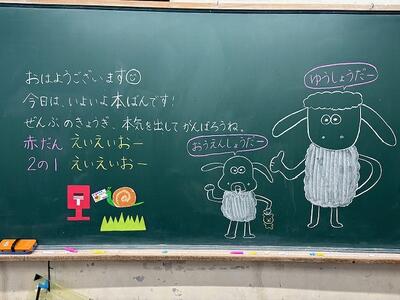 おはようございます
今日は、いよいよ本ばんです!
ぜんぶのきょうぎ、本気を出してがんばろうね。
赤だん えいえいおー
2の1 えいえいおー
おうえんしょうだー
ゆうしょうだー
〒